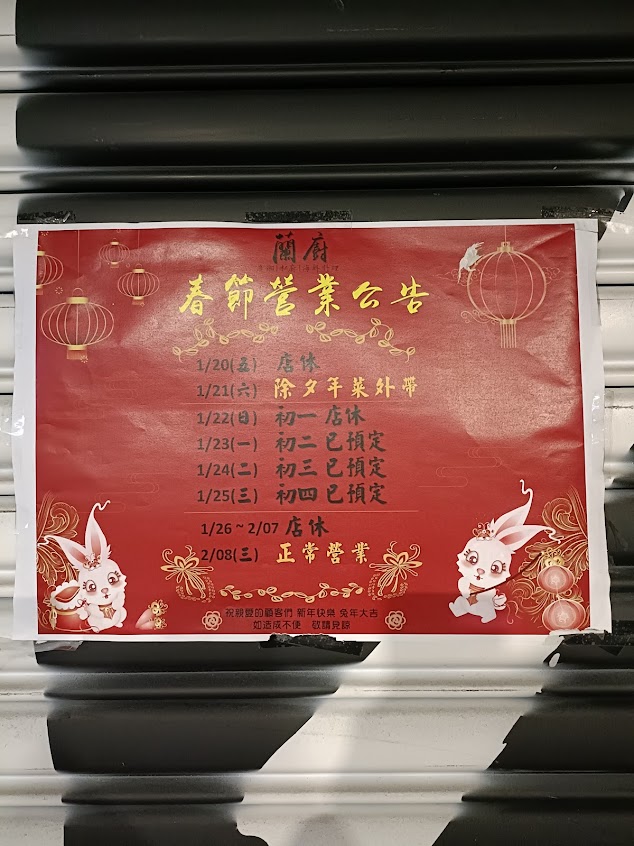 蘭廚
春節營業公告
1/20(五) 店休
1/21(六) 除夕年菜外帶
1/22(日) 初一 店休
1/23(一) 初二 已預定
1/24(二) 初三 已預定
1/25(三) 初四 已預定
1/26 ~ 2/07 店休
2/08(三) 正常營業
祝親愛的顧客們 新年快樂 兔年大吉
如造成不便 敬請見諒